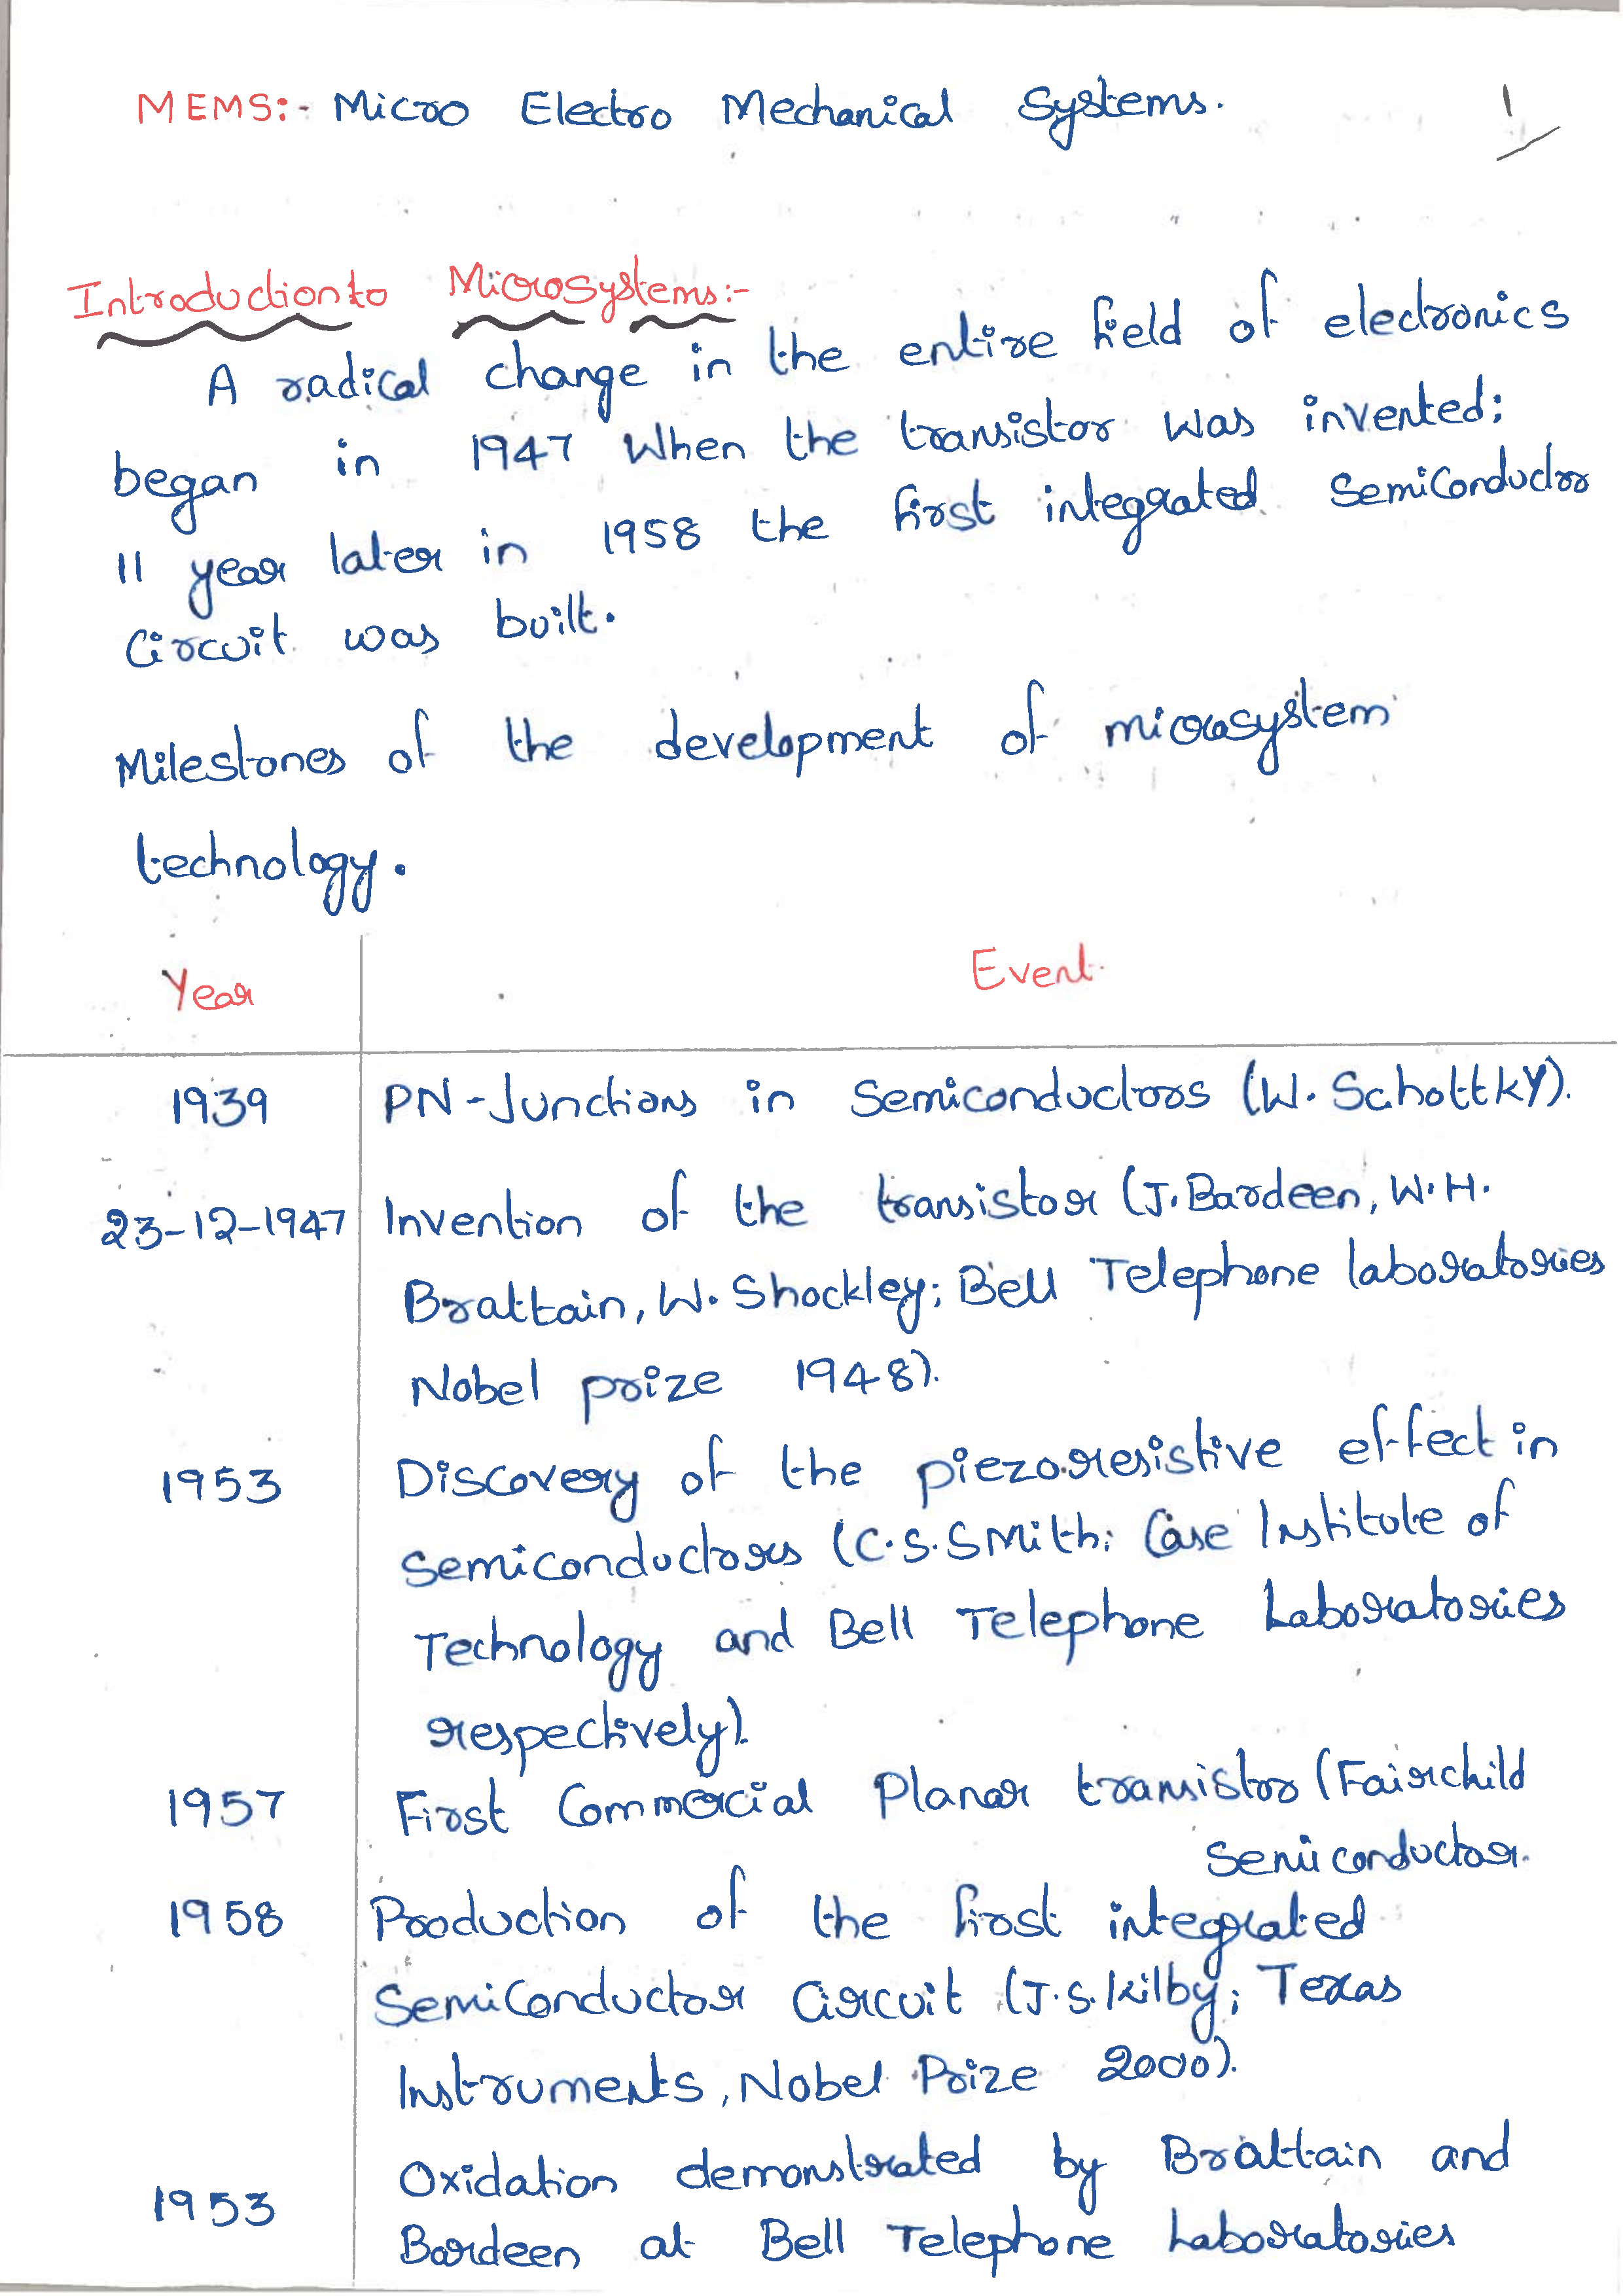 MEMS:- Micro Electro Mechanical Systems.
1
Introduction to Microsystems:-
A radical change in the entire field of electronics
began in 1947 When the transistor was invented;
11 year later in 1958 the first integrated SemiConductor
Circuit was built.
Milestones of the development of microsystem
technology.
Year Event
1939 PN-Junctions in Semiconductors (W. Schottky).
23-12-1947 Invention of the transistor (J. Bardeen, W.H.
Brattain, W. Shockley; Bell Telephone laboratories
Nobel prize 1948).
1953 Discovery of the piezoresistive effect in
Semiconductors (C.S. Smith; Case Institute of
Technology and Bell Telephone Laboratories
respectively).
1957 First Commercial Planar transistor (Fairchild
Semiconductor.
1958 Production of the first integrated
SemiConductor Circuit (J.S. Kilby; Texas
Instruments, Nobel Prize 2000).
1953 Oxidation demonstrated by Brattain and
Bardeen at Bell Telephone Laboratories